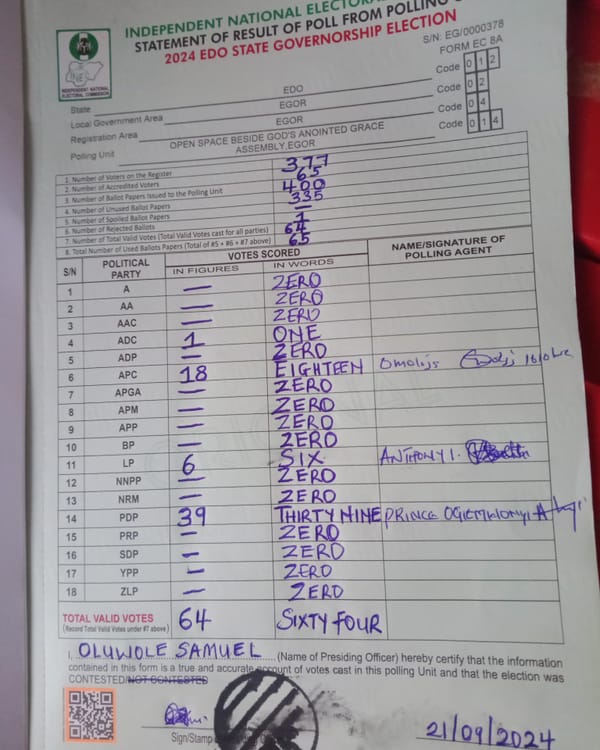 INDEPENDENT NATIONAL ELECTORAL
STATEMENT OF RESULT OF POLL FROM POLLING
2024 EDO STATE GOVERNORSHIP ELECTION
S/N: EG/0000378
FORM EC 8A
INEC
INDEPENDENT NATIONAL ELECTORAL COMMISSION
State EDO Code 0 1 2
Local Government Area EGOR Code 0 2
Registration Area EGOR Code 0 4
Polling Unit OPEN SPACE BESIDE GOD'S ANOINTED GRACE ASSEMBLY,EGOR Code 0 1 4
1. Number of Voters on the Register 377
2. Number of Accredited Voters 65
3. Number of Ballot Papers Issued to the Polling Unit 400
4. Number of Unused Ballot Papers 335
5. Number of Spoiled Ballot Papers —
6. Number of Rejected Ballots 1
7. Number of Total Valid Votes (Total Valid Votes cast for all parties) 64
8. Total Number of Used Ballots Papers (Total of #5 + #6 + #7 above) 65
S/N POLITICAL PARTY VOTES SCORED NAME/SIGNATURE OF POLLING AGENT
IN FIGURES IN WORDS
1 A — ZERO
2 AA — ZERO
3 AAC — ZERO
4 ADC 1 ONE
5 ADP — ZERO
6 APC 18 EIGHTEEN
7 APGA — ZERO
8 APM — ZERO
9 APP — ZERO
10 BP — ZERO
11 LP 6 SIX ANTHONY I.
12 NNPP — ZERO
13 NRM — ZERO
14 PDP 39 THIRTY NINE PRINCE
15 PRP — ZERO
16 SDP — ZERO
17 YPP — ZERO
18 ZLP — ZERO
TOTAL VALID VOTES 64 SIXTY FOUR
(Record Total Valid Votes under #7 above)
I, OLUWOLE SAMUEL (Name of Presiding Officer) hereby certify that the information
contained in this form is a true and accurate account of votes cast in this polling Unit and that the election was
CONTESTED/NOT CONTESTED
Sign/Stamp
21/09/2024